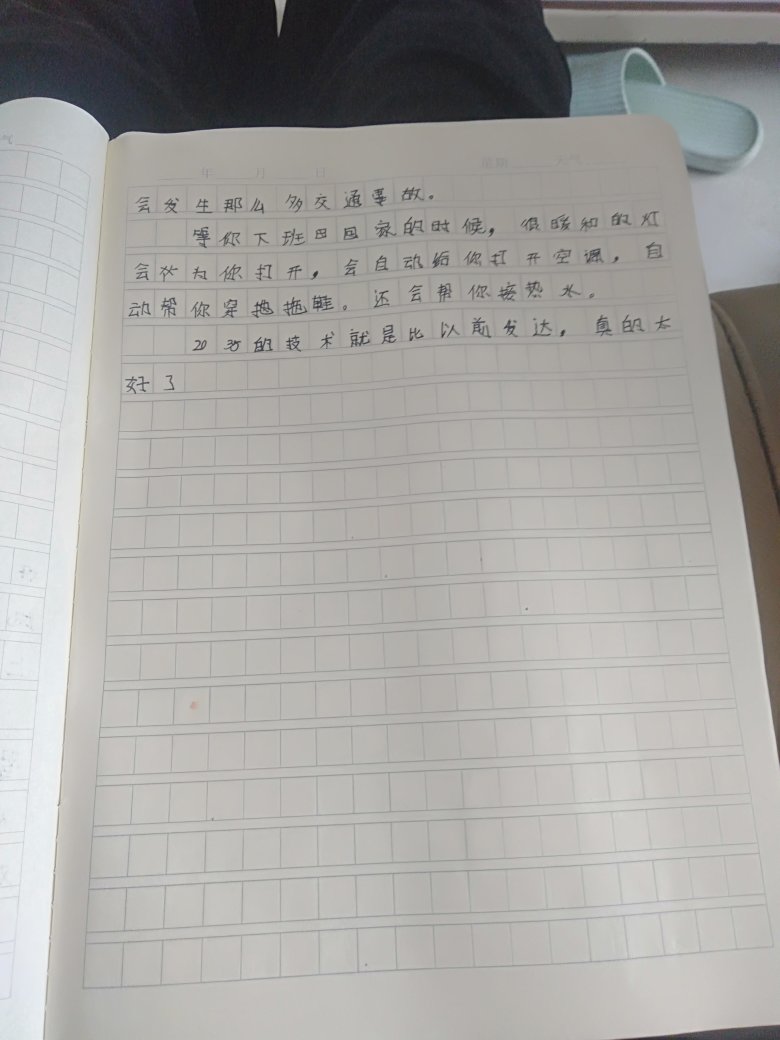 年 月 日 星期 天气
会发生那么多交通事故。
等你下班日回家的时候，很暖和的灯
会为你打开，会自动给你打开空调，自
动帮你穿拖鞋。还会帮你接热水。
2035的技术就是比以前发达，真的太
好了